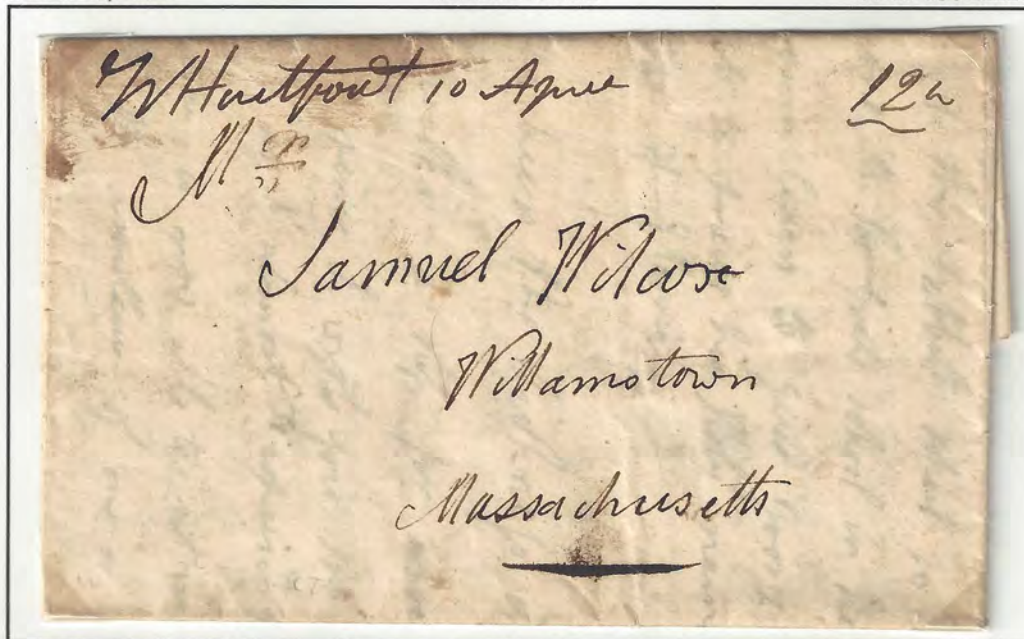 W Hartford 10 April 12
Mr
Samuel Wilcox
Williamstown
Massachusetts